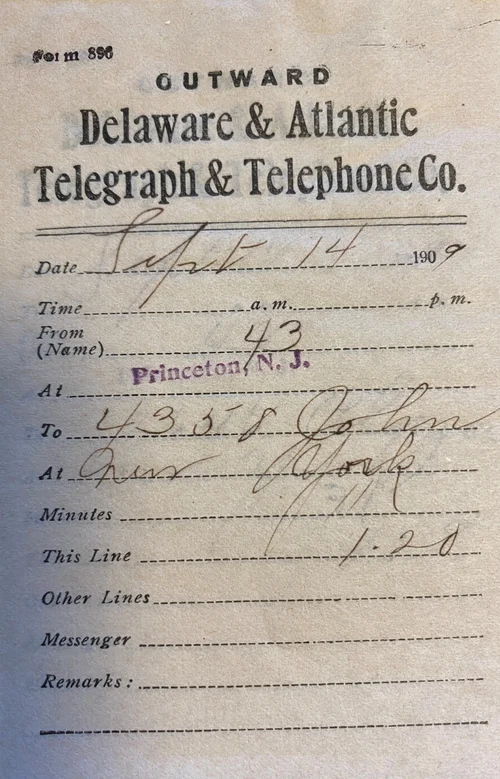 Form 896
OUTWARD
Delaware & Atlantic
Telegraph & Telephone Co.
Date Sept 14 1909
Time a.m. p.m.
From
(Name) 43
Princeton, N. J.
At
To 4358 John
At New York
Minutes
This Line 1.20
Other Lines
Messenger
Remarks: